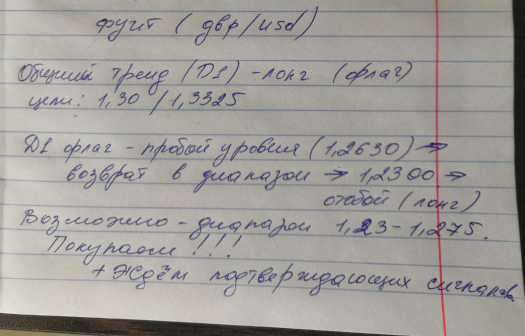 фунт (gbp/usd)
Общий тренд (D1) - лонг (флаг)
цели: 1,30 / 1,3325
D1 флаг - пробой уровня (1,2630) →
возврат в диапазон → 1,2300 →
отобой (лонг)
Возможно - диапазон 1,23 - 1,275.
Покупаем !!!
+ Ждём подтверждающих сигналов.